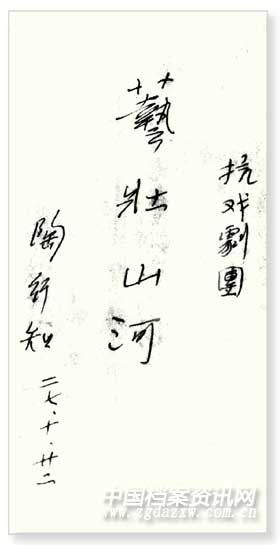 抗戏劇團
藝壯山河
陶行知
二七·十·廿二
中国档案资讯网
www.zgdazxw.com.cn